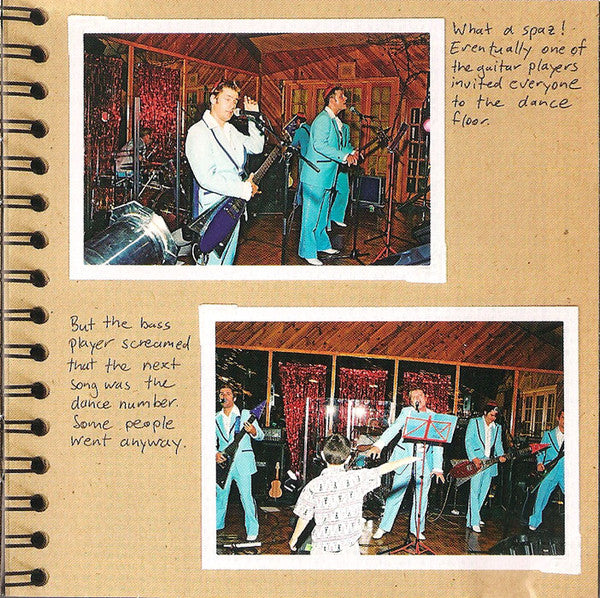 What a spaz!
Eventually one of
the guitar players
invited everyone
to the dance
floor.
But the bass
player screamed
that the next
song was the
dance number.
Some people
went anyway.